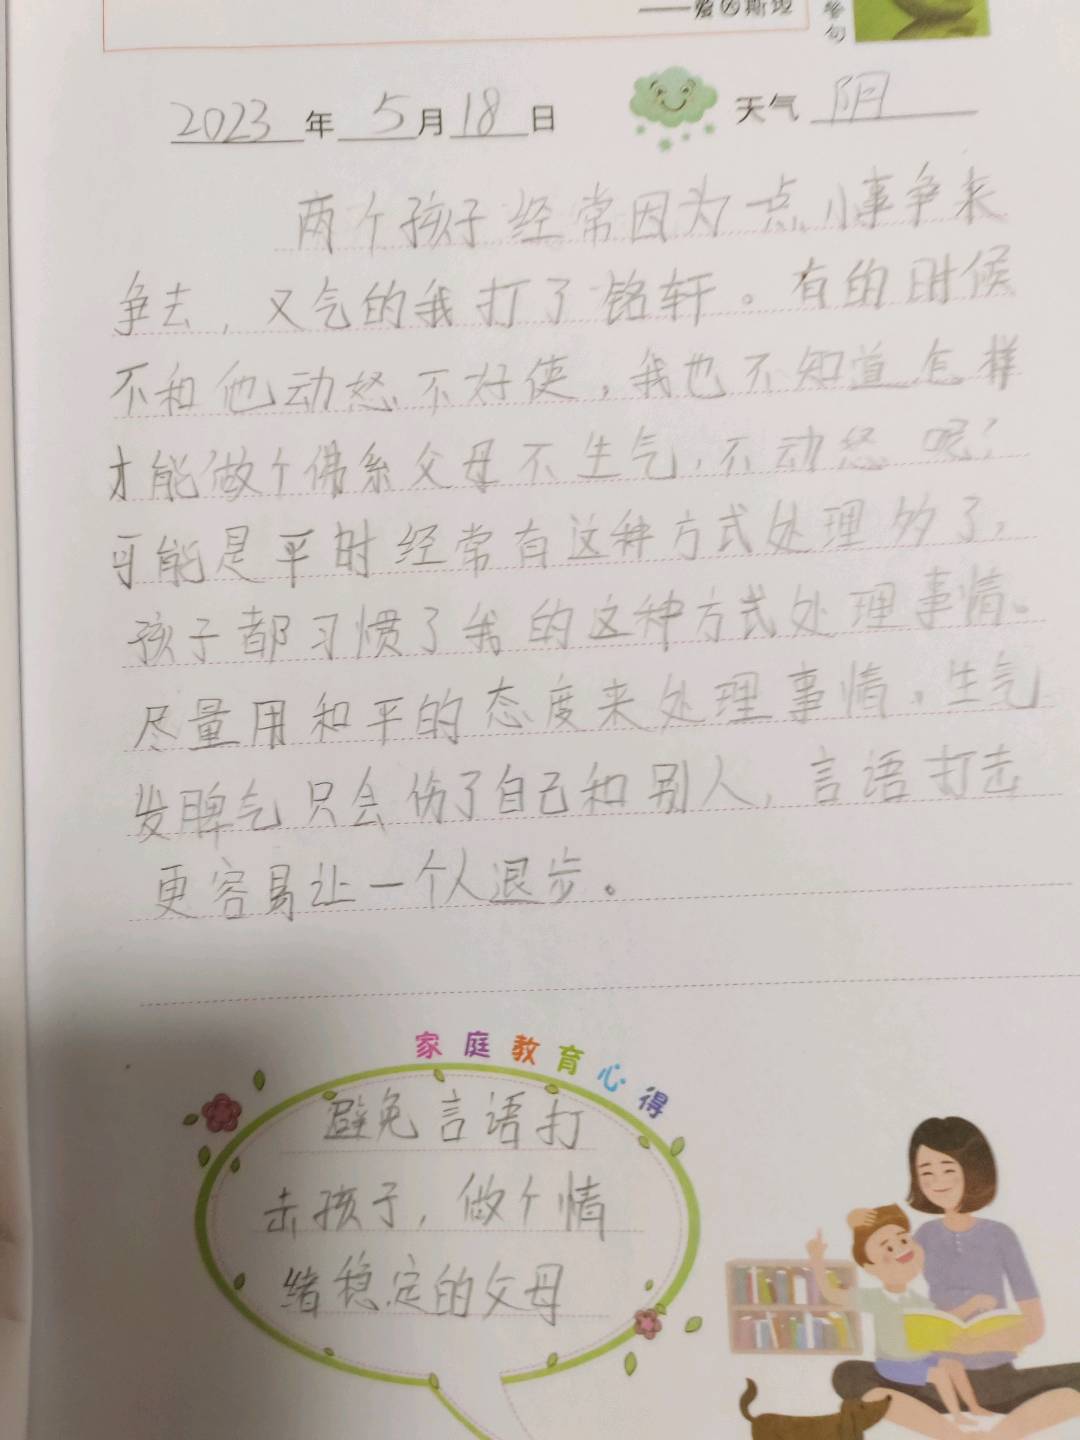 ——爱因斯坦
2023年5月18日 天气 阴
两个孩子经常因为一点小事争来
争去，又气的我打了铭轩。有的时候
不和他动怒不好使，我也不知道怎样
才能做个佛系父母不生气，不动怒呢？
可能是平时经常有这种方式处理多了，
孩子都习惯了我的这种方式处理事情。
尽量用和平的态度来处理事情，生气
发脾气只会伤了自己和别人，言语打击
更容易让一个人退步。
家庭教育心得
避免言语打
击孩子，做个情
绪稳定的父母